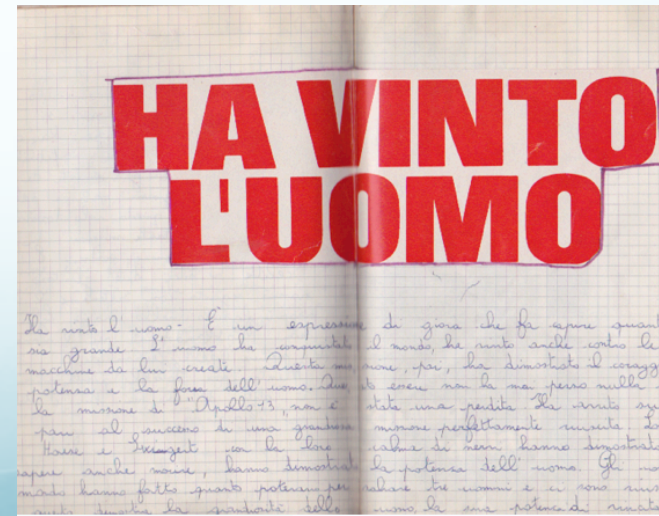 HA VINTO
L'UOMO
Ha vinto l'uomo - È un espressione di gioia che fa capire quant
sia grande L'uomo ha conquistato il mondo, ha vinto anche contro le
macchine da lui create Questa missione, poi, ha dimostrato il coragg
potenza e la forza dell'uomo. Questo essere non ha mai perso nulla
la missione di "Apollo 13, non è stata una perdita Ha avuto
pari al successo di una grandiosa missione perfettamente riuscita Lo
Haise e con la loro calma di nervi hanno dimostrato
sapere anche morire, hanno dimostrato la potenza dell'uomo. Gli
mondo hanno fatto quanto potevano per salvare tre uomini e ci sono
questo dimostra la grandiosità dello uomo, la sua potenza di